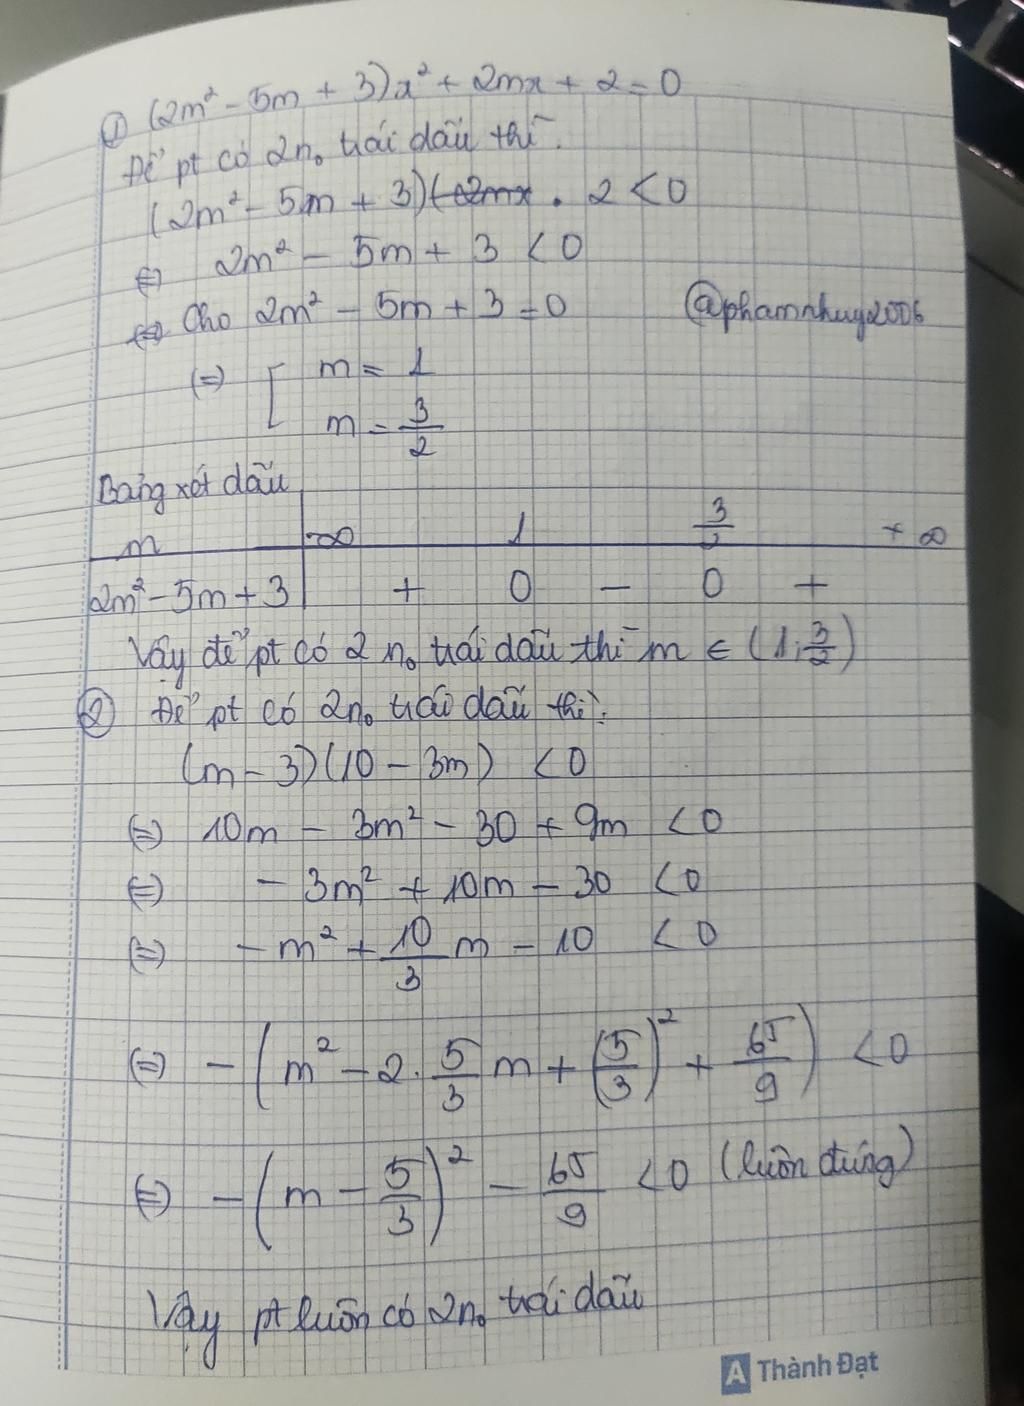 ① (2m² - 5m + 3)x² + 2mx + 2 = 0
Để pt có 2n₀ trái dấu thì:
(2m² - 5m + 3) . 2 < 0
⇔ 2m² - 5m + 3 < 0
⇔ Cho 2m² - 5m + 3 = 0 @phamnhuy2006
(=) [ m = 1
m = 3/2
Bảng xét dấu
m -∞ 1 3/2 +∞
2m² - 5m + 3 + 0 - 0 +
Vậy để pt có 2 n₀ trái dấu thì m ∈ (1; 3/2)
② Để pt có 2n₀ trái dấu thì:
(m - 3)(10 - 3m) < 0
(=) 10m - 3m² - 30 + 9m < 0
(=) - 3m² + 10m - 30 < 0
(=) - m² + 10/3 m - 10 < 0
(=) - (m² - 2. 5/3 m + (5/3)² + 65/9) < 0
(=) - (m - 5/3)² - 65/9 < 0 (luôn đúng)
Vậy pt luôn có 2n₀ trái dấu
A Thành Đạt